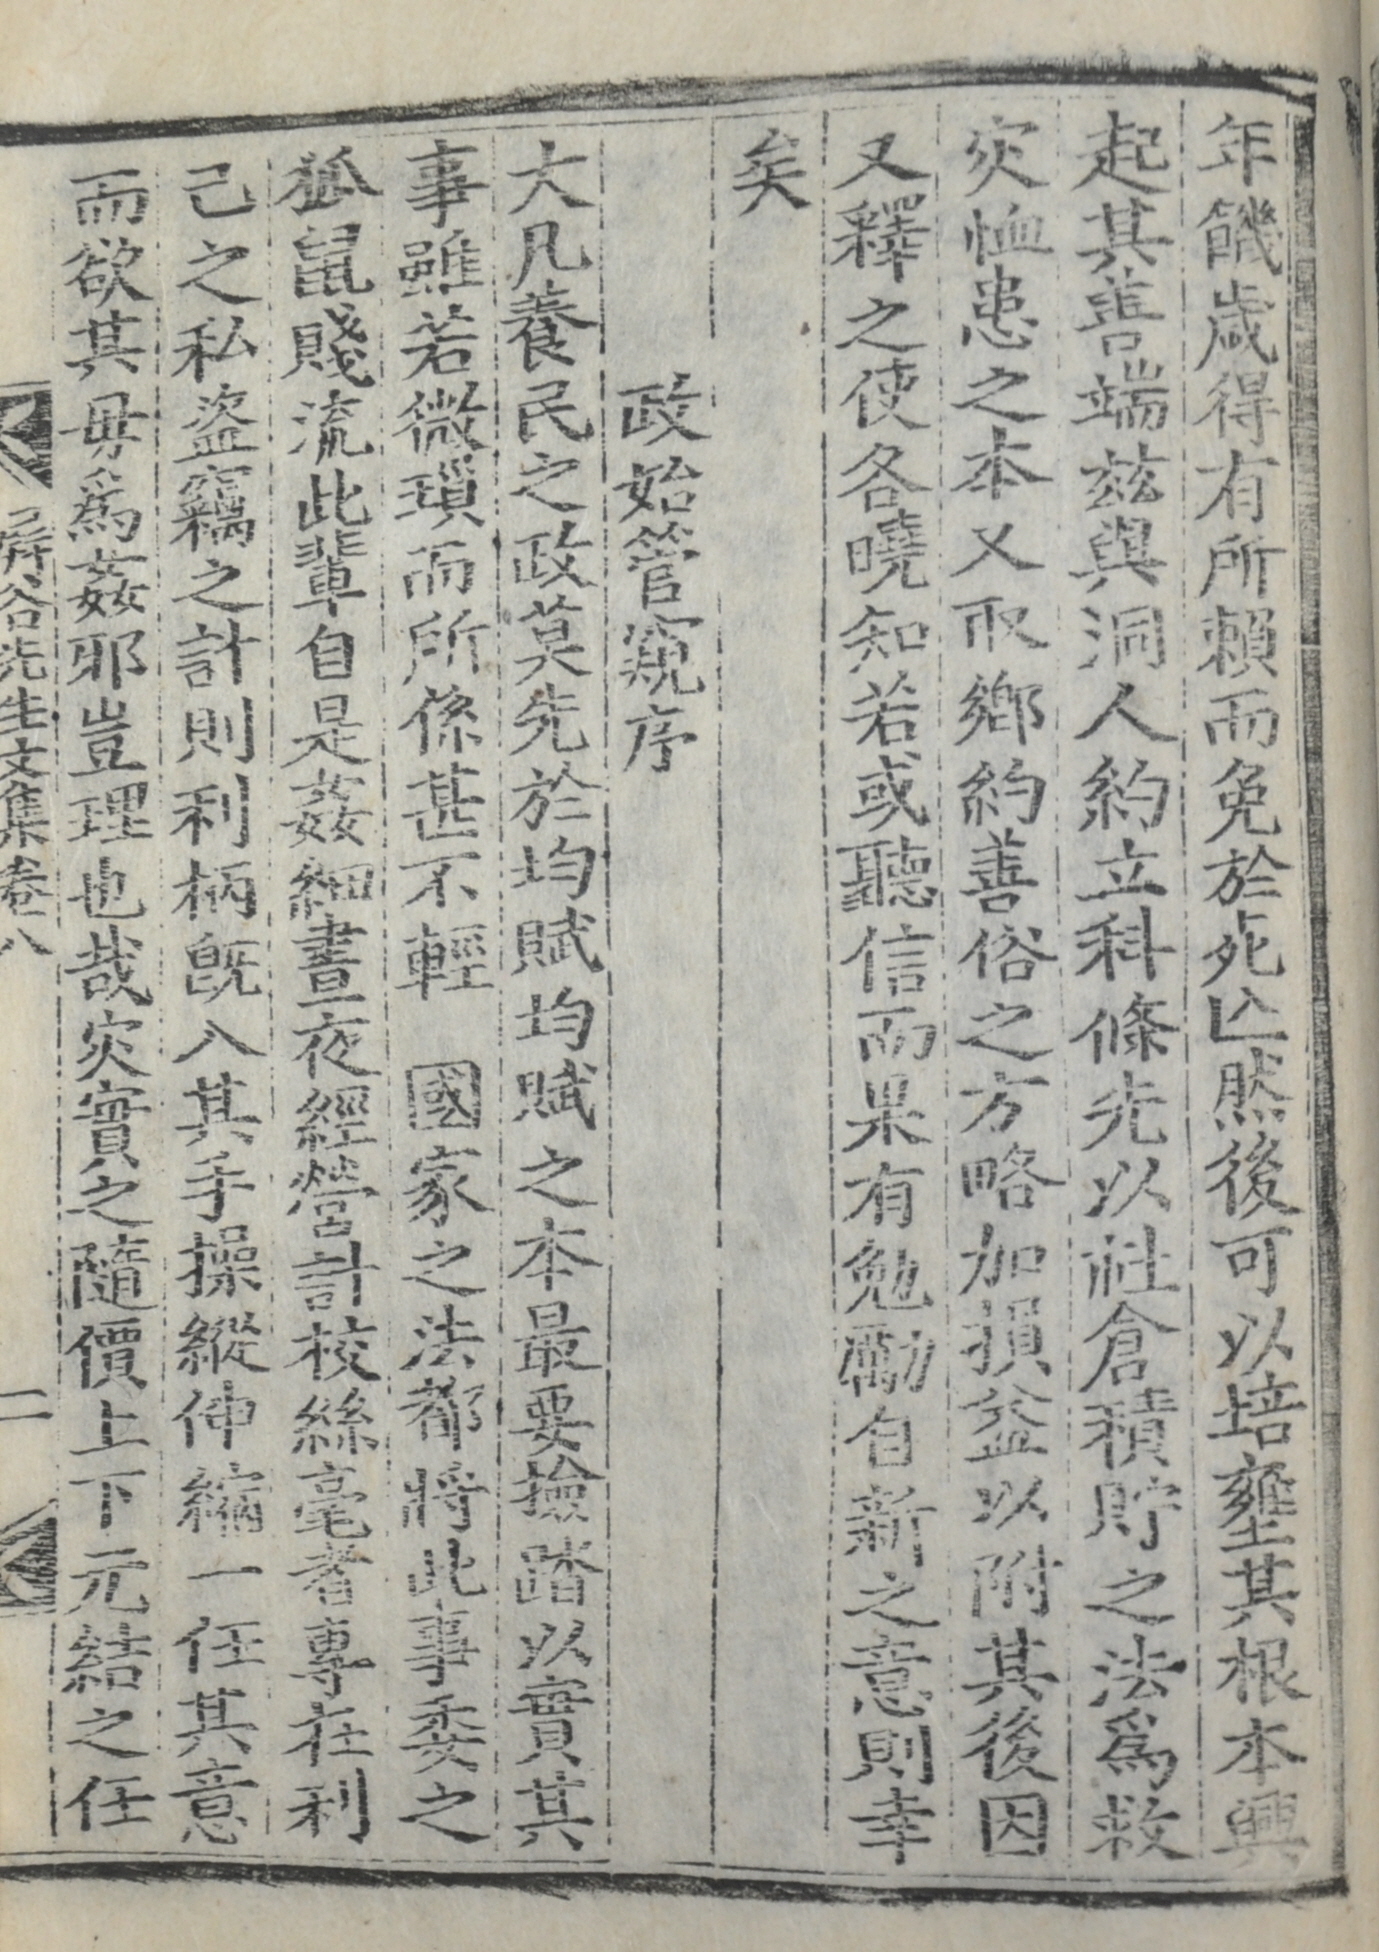 年饑歲得有所賴而免於死亾然後可以培壅其根本興
起其善端玆與洞人約立科條先以社倉積貯之法爲救
灾恤患之本又取鄉約善俗之方略加損益以附其後因
又釋之使各曉知若或聽信而果有勉勵自新之意則幸
矣
政始管窺序
大凡養民之政莫先於均賦均賦之本最要撿踏以實其
事雖若微瑣而所係甚不輕 國家之法都將此事委之
狐鼠賤流此輩自是姦細晝夜經營計校絲毫者專在利
己之私盜竊之計則利柄旣入其手操縱伸縮一任其意
而欲其毋爲姦邪豈理也哉灾實之隨價上下元結之任
谷先生文集卷八 二